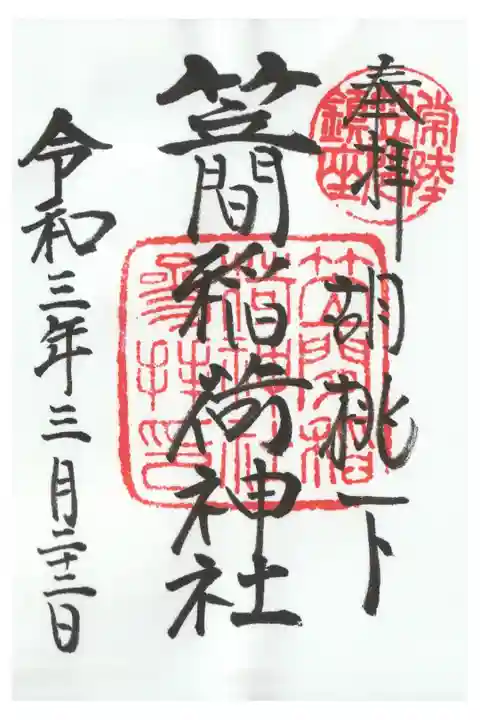 奉拝 胡桃下
笠間稲荷神社
令和三年三月二十二日
常陸
笠間
鎮座
笠間稲
荷神社
参拝之印